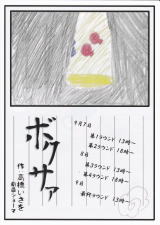 ボクサァ
作 高橋いさを
劇団ショーマ
9月7日
第1ラウンド 13時~
第2ラウンド 18時~
8日
第3ラウンド 13時~
第4ラウンド 18時~
9日
最終ラウンド 13時~